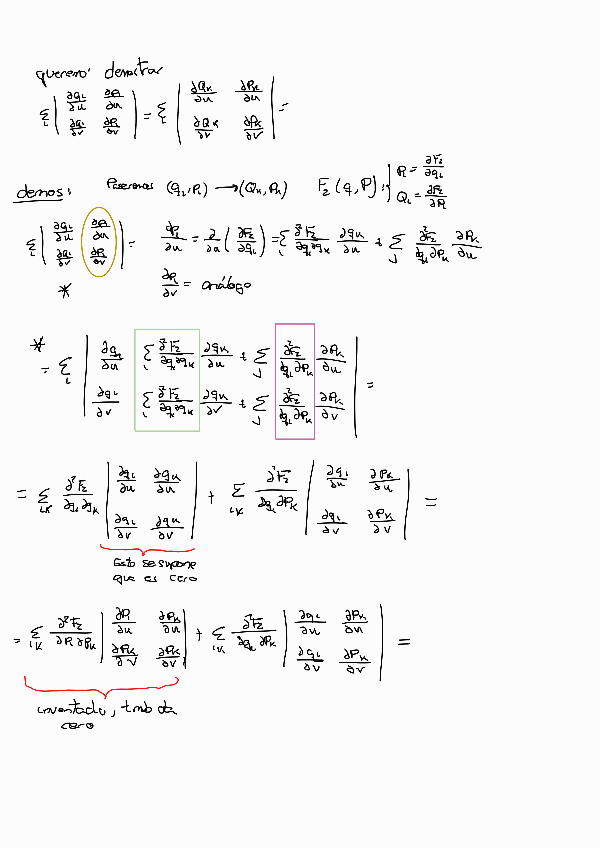 queremos demostrar
∑_i | ∂q_i/∂u ∂P_i/∂u ; ∂q_i/∂v ∂P_i/∂v | = ∑_i | ∂Q_k/∂u ∂P_k/∂u ; ∂Q_k/∂v ∂P_k/∂v | =
demos: Pasaremos (q_i, P_i) → (Q_k, P_k) F_2(q, P) : { P_i = ∂F_2/∂q_i ; Q_i = ∂F_2/∂P_i
∑_i | ∂q_i/∂u ∂P_i/∂u ; ∂q_i/∂v ∂P_i/∂v | = ∂P_i/∂u = ∂/∂u ( ∂F_2/∂q_i ) = ∑_i ∂²F_2/∂q_i∂q_k ∂q_k/∂u + ∑_j ∂²F_2/∂q_i∂P_k ∂P_k/∂u
* ∂P_i/∂v = análogo
* = ∑_i | ∂q_i/∂u ∑_i ∂²F_2/∂q_i∂q_k ∂q_k/∂u + ∑_j ∂²F_2/∂q_i∂P_k ∂P_k/∂u ; ∂q_i/∂v ∑_i ∂²F_2/∂q_i∂q_k ∂q_k/∂v + ∑_j ∂²F_2/∂q_i∂P_k ∂P_k/∂v | =
= ∑_ik ∂²F_2/∂q_i∂q_k | ∂q_i/∂u ∂q_k/∂u ; ∂q_i/∂v ∂q_k/∂v | + ∑_ik ∂²F_2/∂q_i∂P_k | ∂q_i/∂u ∂P_k/∂u ; ∂q_i/∂v ∂P_k/∂v | =
Esto se supone
que es cero
= ∑_ik ∂²F_2/∂P_i∂P_k | ∂P_i/∂u ∂P_k/∂u ; ∂P_k/∂v ∂P_k/∂v | + ∑_ik ∂²F_2/∂q_i∂P_k | ∂q_i/∂u ∂P_k/∂u ; ∂q_i/∂v ∂P_k/∂v | =
inventado, tmb da
cero